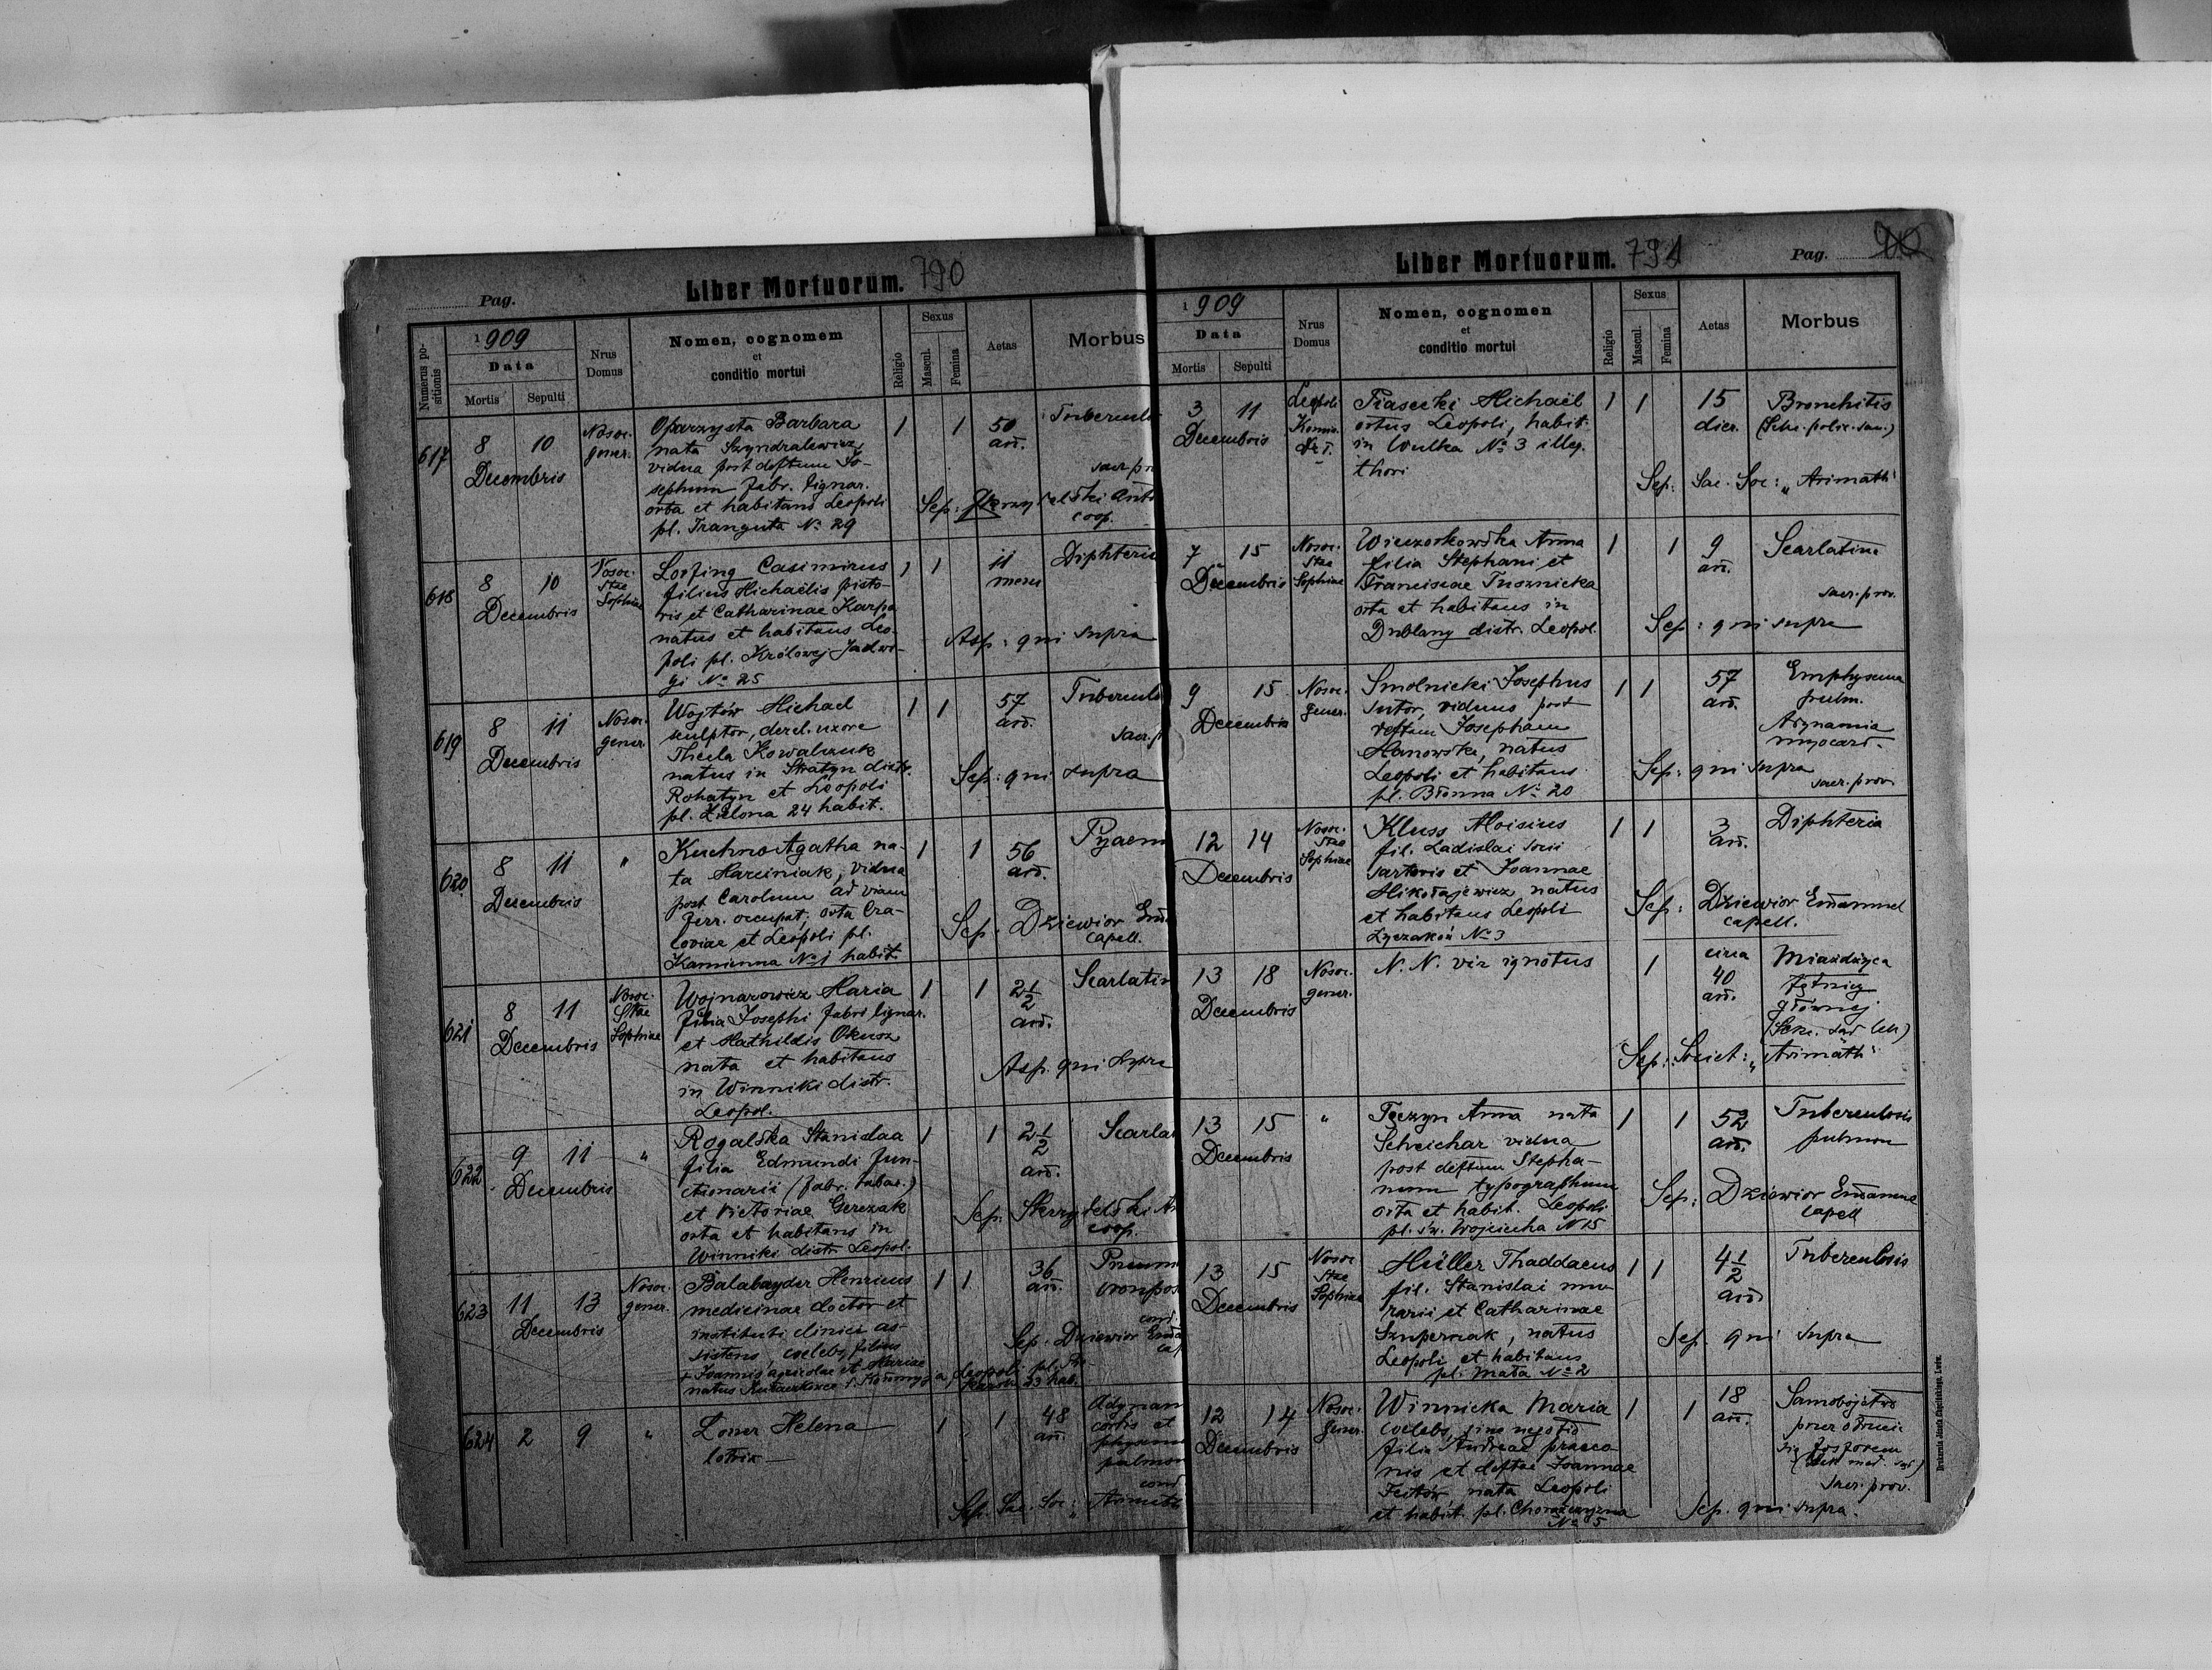 Pag.
Liber Mortuorum. 790
Numerus positionis
1909
Data
Mortis
Sepulti
Nrus Domus
Nomen, cognomem
et
conditio mortui
Religio
Sexus
Mascul.
Femina
Aetas
Morbus
617
8
10
Decembris
Nosoc.
gener.
Oparzysta Barbara
nata Szyndralewicz,
vidua post deftum Jo-
sephum fabr. lignar.
orta et habitans Leopoli
pl. Franzuta No 29
1
1
50
añ.
Tuberculo
Sep:
coop.
618
8
10
Decembris
Nosoc.
Stae
Sophiae
Casimirus
filius Michaëlis pisto-
ris et Catharinae Karpa
natus et habitans Leo-
poli pl. Królowej Jadwi-
gi No 25
1
1
11
mens
Diphteria
Asp: qui supra
619
8
11
Decembris
Nosoc.
gener.
Wojtów Michael
sculptor, derel. uxore
Thecla Kowalczuk
natus in Stratyn distr.
Rohatyn et Leopoli
pl. Zielona 24 habit.
1
1
57
añ.
Tuberculo
Sep: qui supra
620
8
11
Decembris
"
Kuchno Agatha na-
ta Marciniak, vidua
post Carolum ad viam
ferr. occupat; orta Cra-
coviae et Leopoli pl.
Kamienna No 1 habit.
1
1
56
añ.
Pyaem
Sep: Dziewior Em
capell.
621
8
11
Decembris
Nosoc.
Stae
Sophiae
Wojnarowicz Maria
filia Josephi fabri lignar.
et Mathildis Okusz
nata et habitans
in Winniki distr.
Leopol.
1
1
2 1/2
añ.
Scarlatin
Asp. qui supra
622
9
11
Decembris
"
Rogalska Stanislaa
filia Edmundi fun-
ctionarii (fabr. tabac.)
et Victoriae Gerczak
orta et habitans in
Winniki distr. Leopol.
1
1
2 1/2
añ.
Scarlat
Sep.
coop.
623
11
13
Decembris
Nosoc.
gener.
Balabayder Henricus
medicinae doctor et
instituti clinici as-
sistens, coelebs, filius
+ Joannis agricolae et Mariae
natus
1
1
36
añ.
Pneum
Sep. Dziewior Ema
624
2
9
"
Helena
lotrix
1
1
48
añ.
Adynam
cordis et
pulmon
Sep. Sac. Soc: "Arimath
Liber Mortuorum. 791
Pag.
1909
Data
Mortis
Sepulti
Nrus
Domus
Nomen, cognomen
et
conditio mortui
Religio
Sexus
Mascul.
Femina
Aetas
Morbus
3
11
Decembris
Leopoli
Piasecki Michaël
ortus Leopoli, habit.
in Wulka No 3 illeg.
thori
1
1
15
dier.
Bronchitis
Sep: Sac. Soc: "Arimath"
7
15
Decembris
Nosoc.
Stae
Sophiae
Wieczorkowska Anna
filia Stephani et
Franciscae Tusznicka
orta et habitans in
Dublany distr. Leopol.
1
1
9
añ.
Scarlatina
sacr. prov.
Sep: qui supra
9
15
Decembris
Nosoc.
gener.
Smolnicki Josephus
sutor, viduus post
deftam Josepham
Manowska, natus
Leopoli et habitans
pl. Błonna No 20
1
1
57
añ.
Emphysema
pulm.
Adynamia
myocard.
Sep: qui supra
sacr. prov.
12
14
Decembris
Nosoc.
Stae
Sophiae
Kluss Aloisius
fil. Ladislai socii
sartoris et Joannae
Mikołajewicz, natus
et habitans Leopoli
Łyczaków No 3
1
1
3
añ.
Diphteria
Sep: Dziewior Emanuel
capell.
13
18
Decembris
Nosoc.
gener.
N. N. vir ignotus
1
circa
40
añ.
Miażdżyca
tętnicy
głównej
Sep: Societ: "Arimath"
13
15
Decembris
"
Tęczyn Anna nata
Schreichar vidua
post deftum Stepha-
num typographum
orta et habit. Leopoli
pl. św. Wojciecha N 15
1
1
52
añ.
Tuberculosis
pulmon
Sep: Dziewior Emanuel
capell
13
15
Decembris
Nosoc
Stae
Sophiae
Müller Thaddaeus
fil. Stanislai mu-
rarii et Catharinae
Szuperniak, natus
Leopoli et habitans
pl. Mała No 2
1
1
4 1/2
añ
Tuberculosis
Sep. qui supra
12
14
Decembris
Nosoc.
gener.
Winnicka Maria
coelebs, sine negotio
filia Andreae praeco-
nis et deftae Joannae
Fedór nata Leopoli
et habit. pl. Chorążczyzna
No 5
1
1
18
añ.
Samobójstwo
przez otrucie
się fosforem
sacr. prov.
Sep. qui supra.